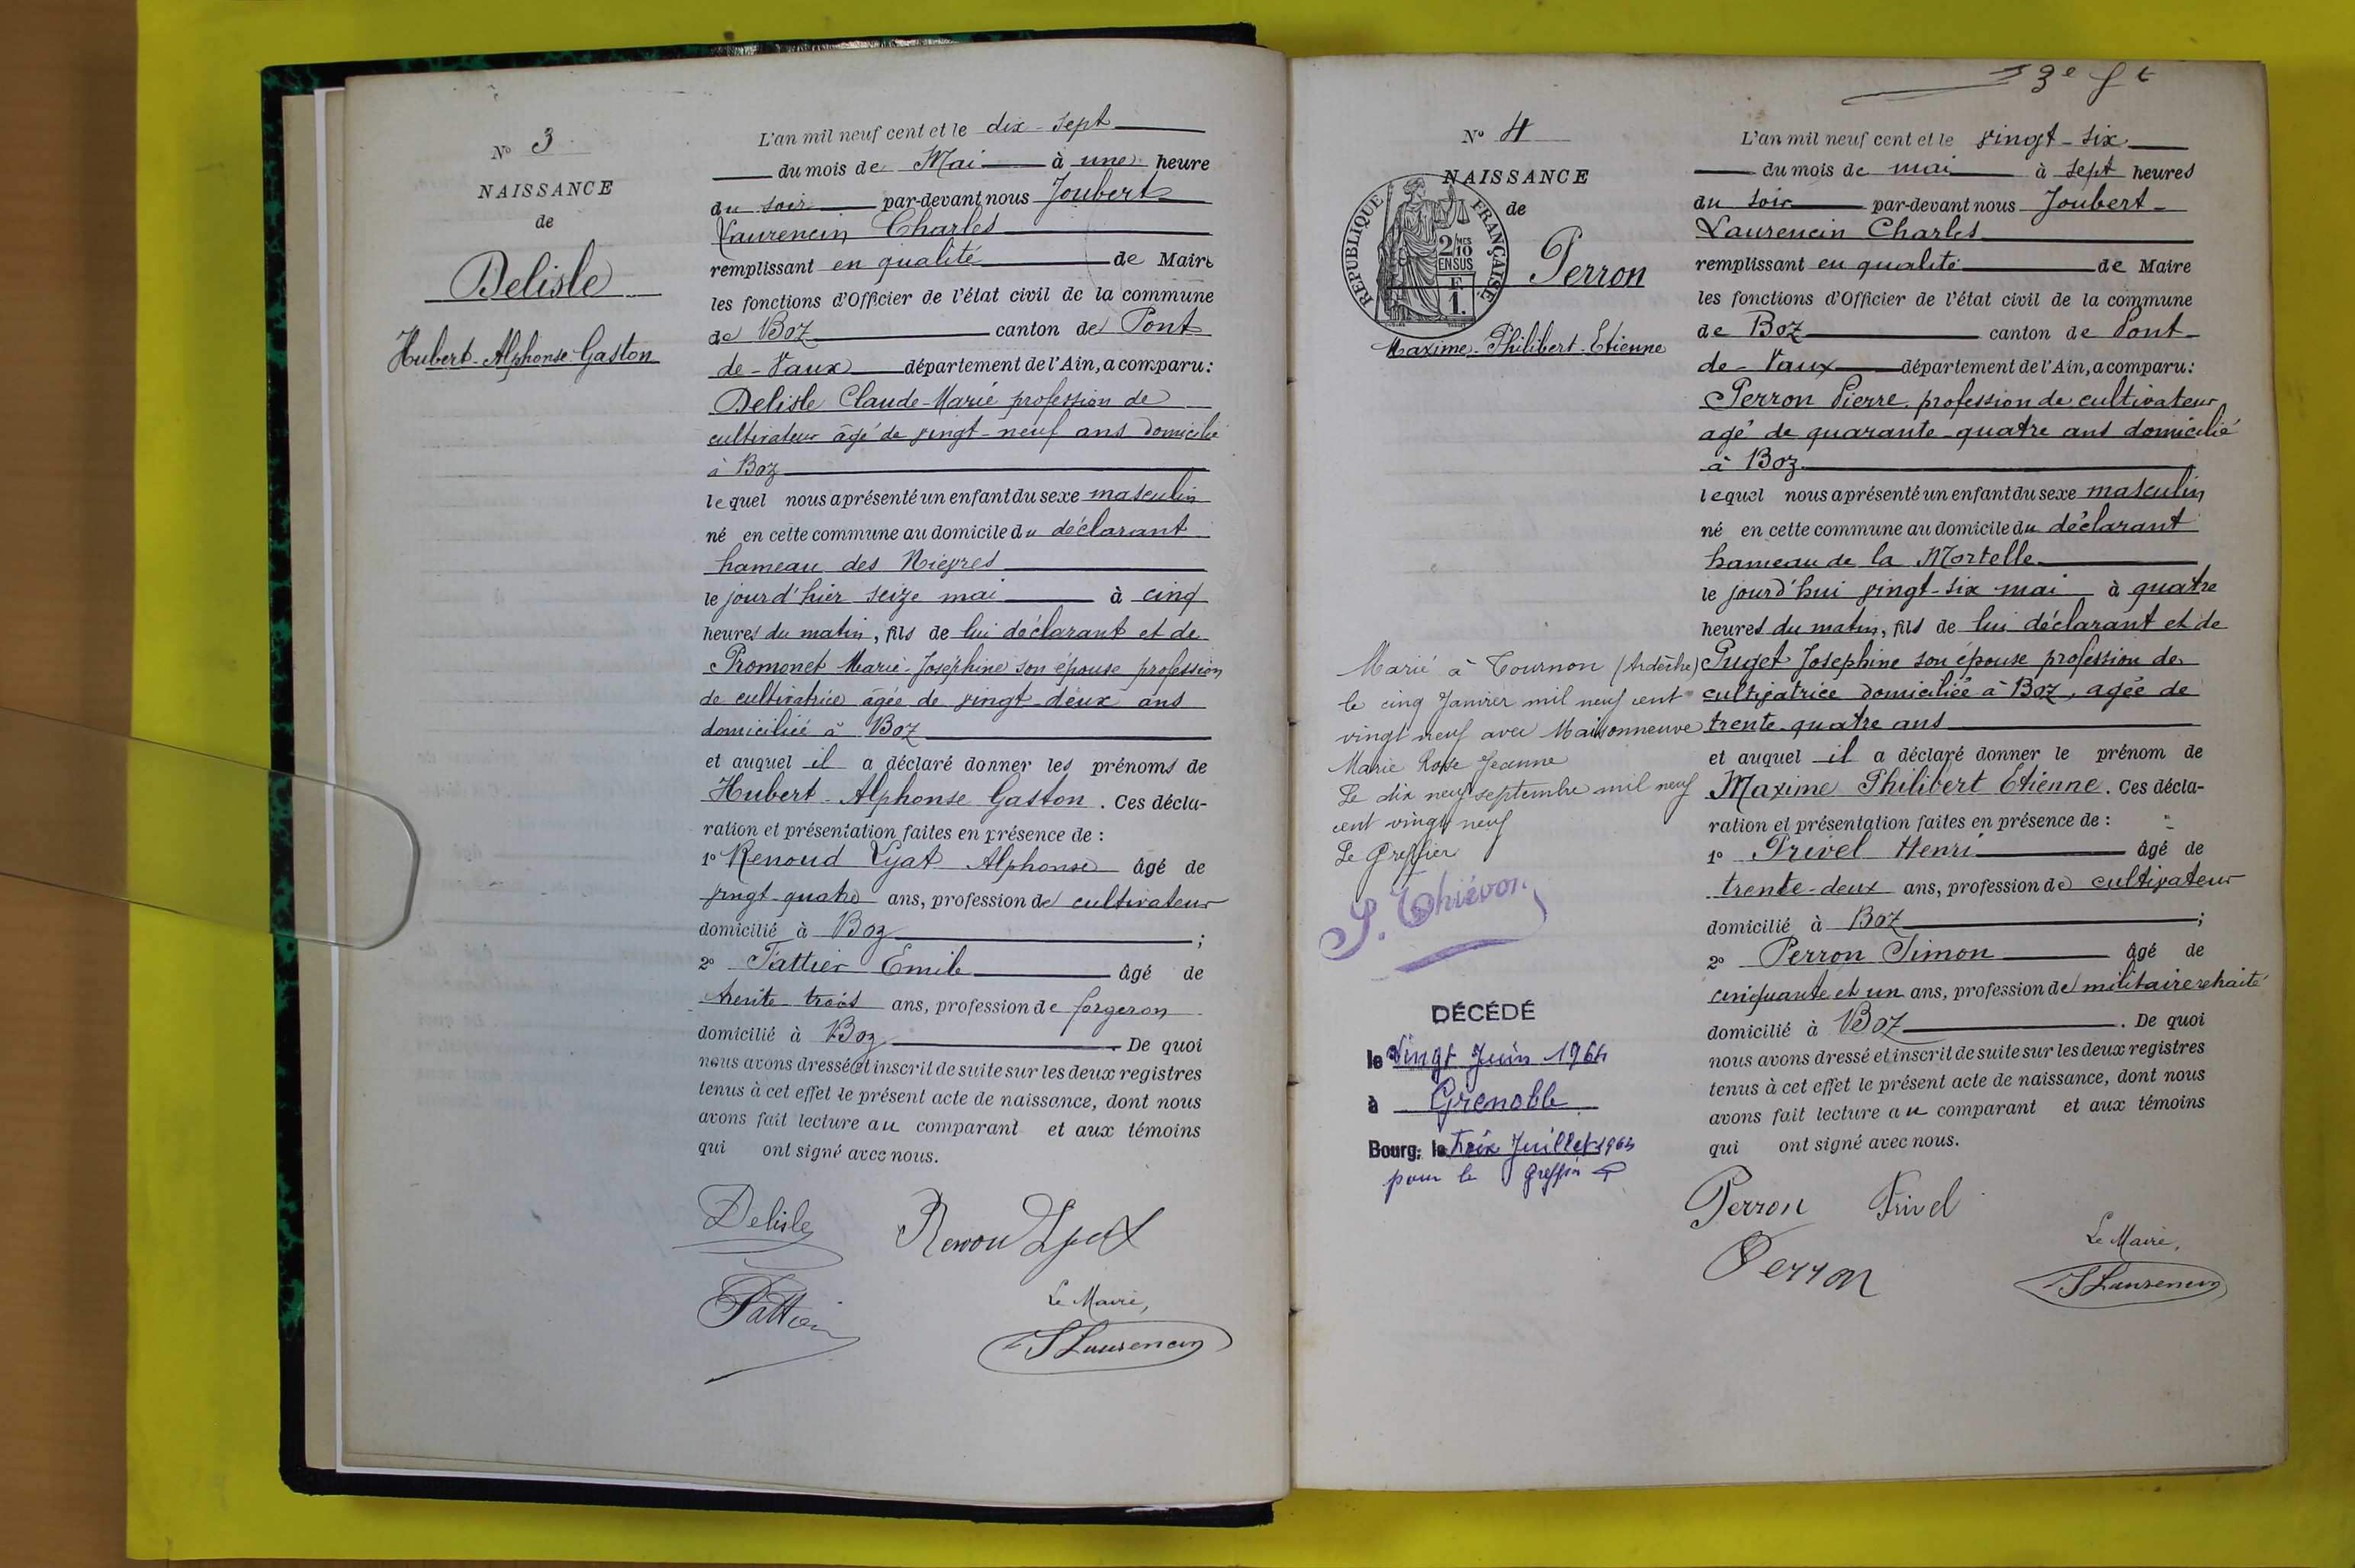 N° 3
NAISSANCE
de
Delisle
Hubert-Alphonse-Gaston
L'an mil neuf cent et le dix-sept
du mois de Mai à une heure
du soir par-devant nous Joubert
Laurencin Charles
remplissant en qualité de Maire
les fonctions d'Officier de l'état civil de la commune
de Boz canton de Pont
de-Vaux département de l'Ain, a comparu :
Delisle Claude-Marie profession de
cultivateur âgé de vingt-neuf ans domicilié
à Boz
lequel nous a présenté un enfant du sexe masculin
né en cette commune au domicile du déclarant
hameau des Nièvres
le jour d'hier seize mai à cinq
heures du matin, fils de lui déclarant et de
Promonet Marie-Joséphine son épouse profession
de cultivatrice âgée de vingt-deux ans
domiciliée à Boz
et auquel il a déclaré donner les prénoms de
Hubert-Alphonse Gaston. Ces décla-
ration et présentation faites en présence de :
1° Renoud Lyat Alphonse âgé de
vingt-quatre ans, profession de cultivateur
domicilié à Boz ;
2° Pattier Emile âgé de
trente-trois ans, profession de forgeron
domicilié à Boz. De quoi
nous avons dressé et inscrit de suite sur les deux registres
tenus à cet effet le présent acte de naissance, dont nous
avons fait lecture au comparant et aux témoins
qui ont signé avec nous.
Delisle Renoud Lyat
Pattier
Le Maire,
J Laurencin
3e ft
N° 4
NAISSANCE
de
RÉPUBLIQUE FRANÇAISE
2/10 MES
EN SUS
F
1.
Perron
Maxime-Philibert-Etienne
Marié à Tournon (Ardèche)
le cinq Janvier mil neuf cent
vingt neuf avec Maisonneuve
Marie Rose Jeanne
Le dix neuf septembre mil neuf
cent vingt neuf
Le Greffier
S. Thiévon
DÉCÉDÉ
le Vingt Juin 1964
à Grenoble
Bourg, le trois Juillet 1964
pour le greffier
L'an mil neuf cent et le vingt-six
du mois de mai à sept heures
du soir par-devant nous Joubert
Laurencin Charles
remplissant en qualité de Maire
les fonctions d'Officier de l'état civil de la commune
de Boz canton de Pont
de-Vaux département de l'Ain, a comparu :
Perron Pierre, profession de cultivateur
agé de quarante-quatre ans domicilié
à Boz
lequel nous a présenté un enfant du sexe masculin
né en cette commune au domicile du déclarant
hameau de la Mortelle
le jour d'hui vingt-six mai à quatre
heures du matin, fils de lui déclarant et de
Puget Josephine son épouse profession de
cultivatrice domiciliée à Boz, agée de
trente-quatre ans
et auquel il a déclaré donner le prénom de
Maxime Philibert Etienne. Ces décla-
ration et présentation faites en présence de :
1° Privel Henri âgé de
trente-deux ans, profession de cultivateur
domicilié à Boz ;
2° Perron Simon âgé de
cinquante et un ans, profession de militaire retraité
domicilié à Boz. De quoi
nous avons dressé et inscrit de suite sur les deux registres
tenus à cet effet le présent acte de naissance, dont nous
avons fait lecture au comparant et aux témoins
qui ont signé avec nous.
Perron Privel
Perron
Le Maire,
J Laurencin